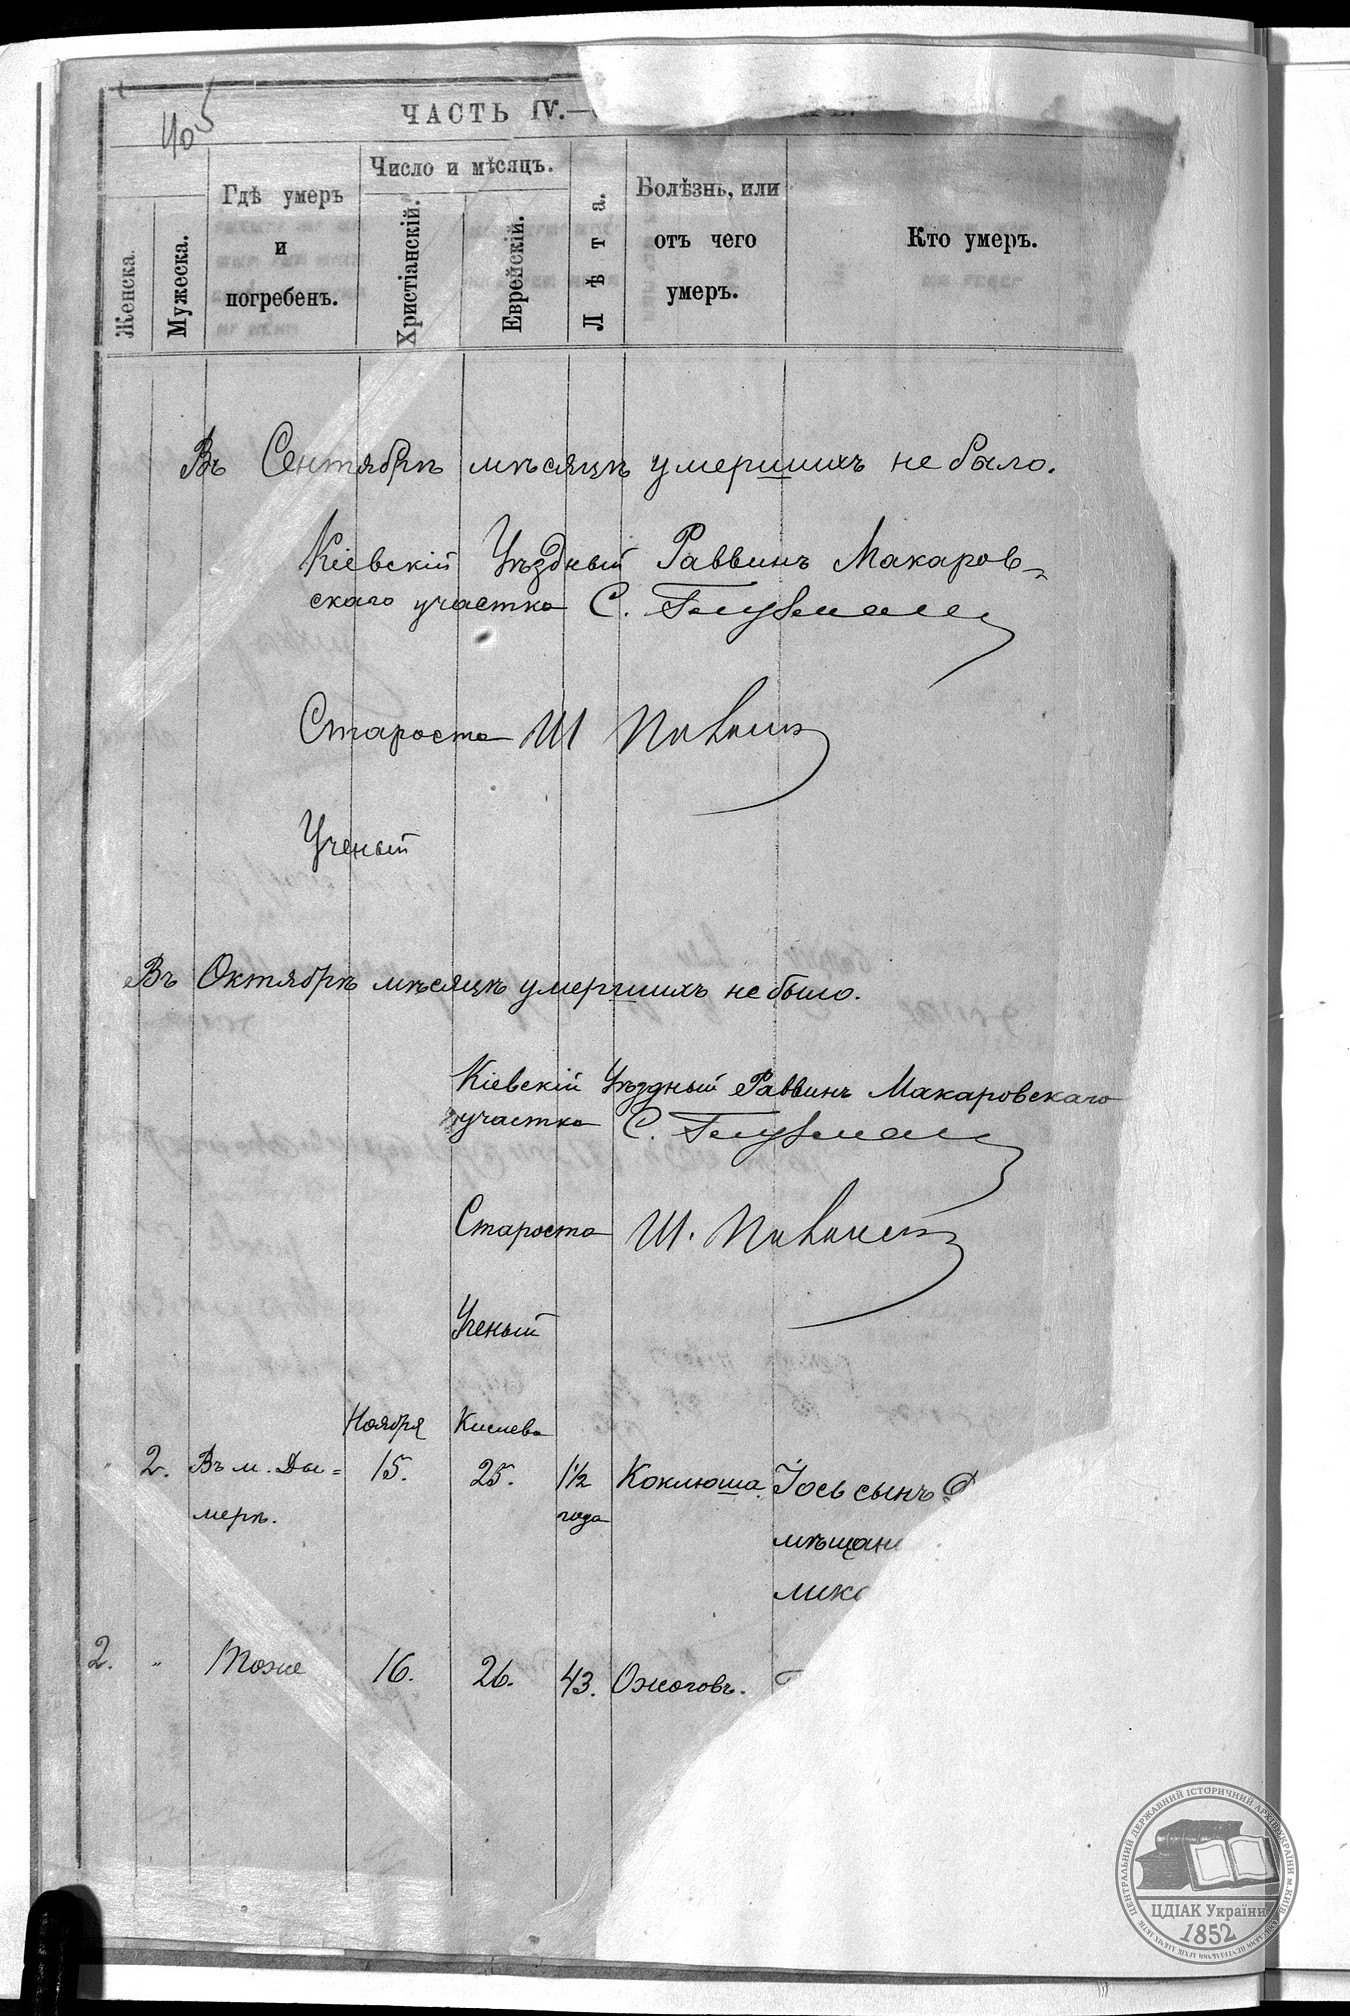 405
ЧАСТЬ IV.—
Женска.
Мужеска.
Гдѣ умеръ
и
погребенъ.
Число и мѣсяцъ.
Христіанскій.
Еврейскій.
Лѣта.
Болѣзнь, или
отъ чего
умеръ.
Кто умеръ.
Въ Сентябрѣ мѣсяцѣ умершихъ не было.
Кіевскій Уѣздный Раввинъ Макаров-
скаго участка С.
Староста Ш
Ученый
Въ Октябрѣ мѣсяцѣ умершихъ не было.
Кіевскій Уѣздный Раввинъ Макаровскаго
участка С.
Староста Ш.
Ученый
Ноября Кислева
2. Въ м. Ды= 15. 25. 1½ Коклюша. Іось сынъ
мерѣ. года
мѣщани
2. „ Тоже 16. 26. 43. Ожоговъ.
ЦЕНТРАЛЬНИЙ ДЕРЖАВНИЙ ІСТОРИЧНИЙ АРХІВ УКРАЇНИ м.КИЇВ
ЦДІАК України
1852